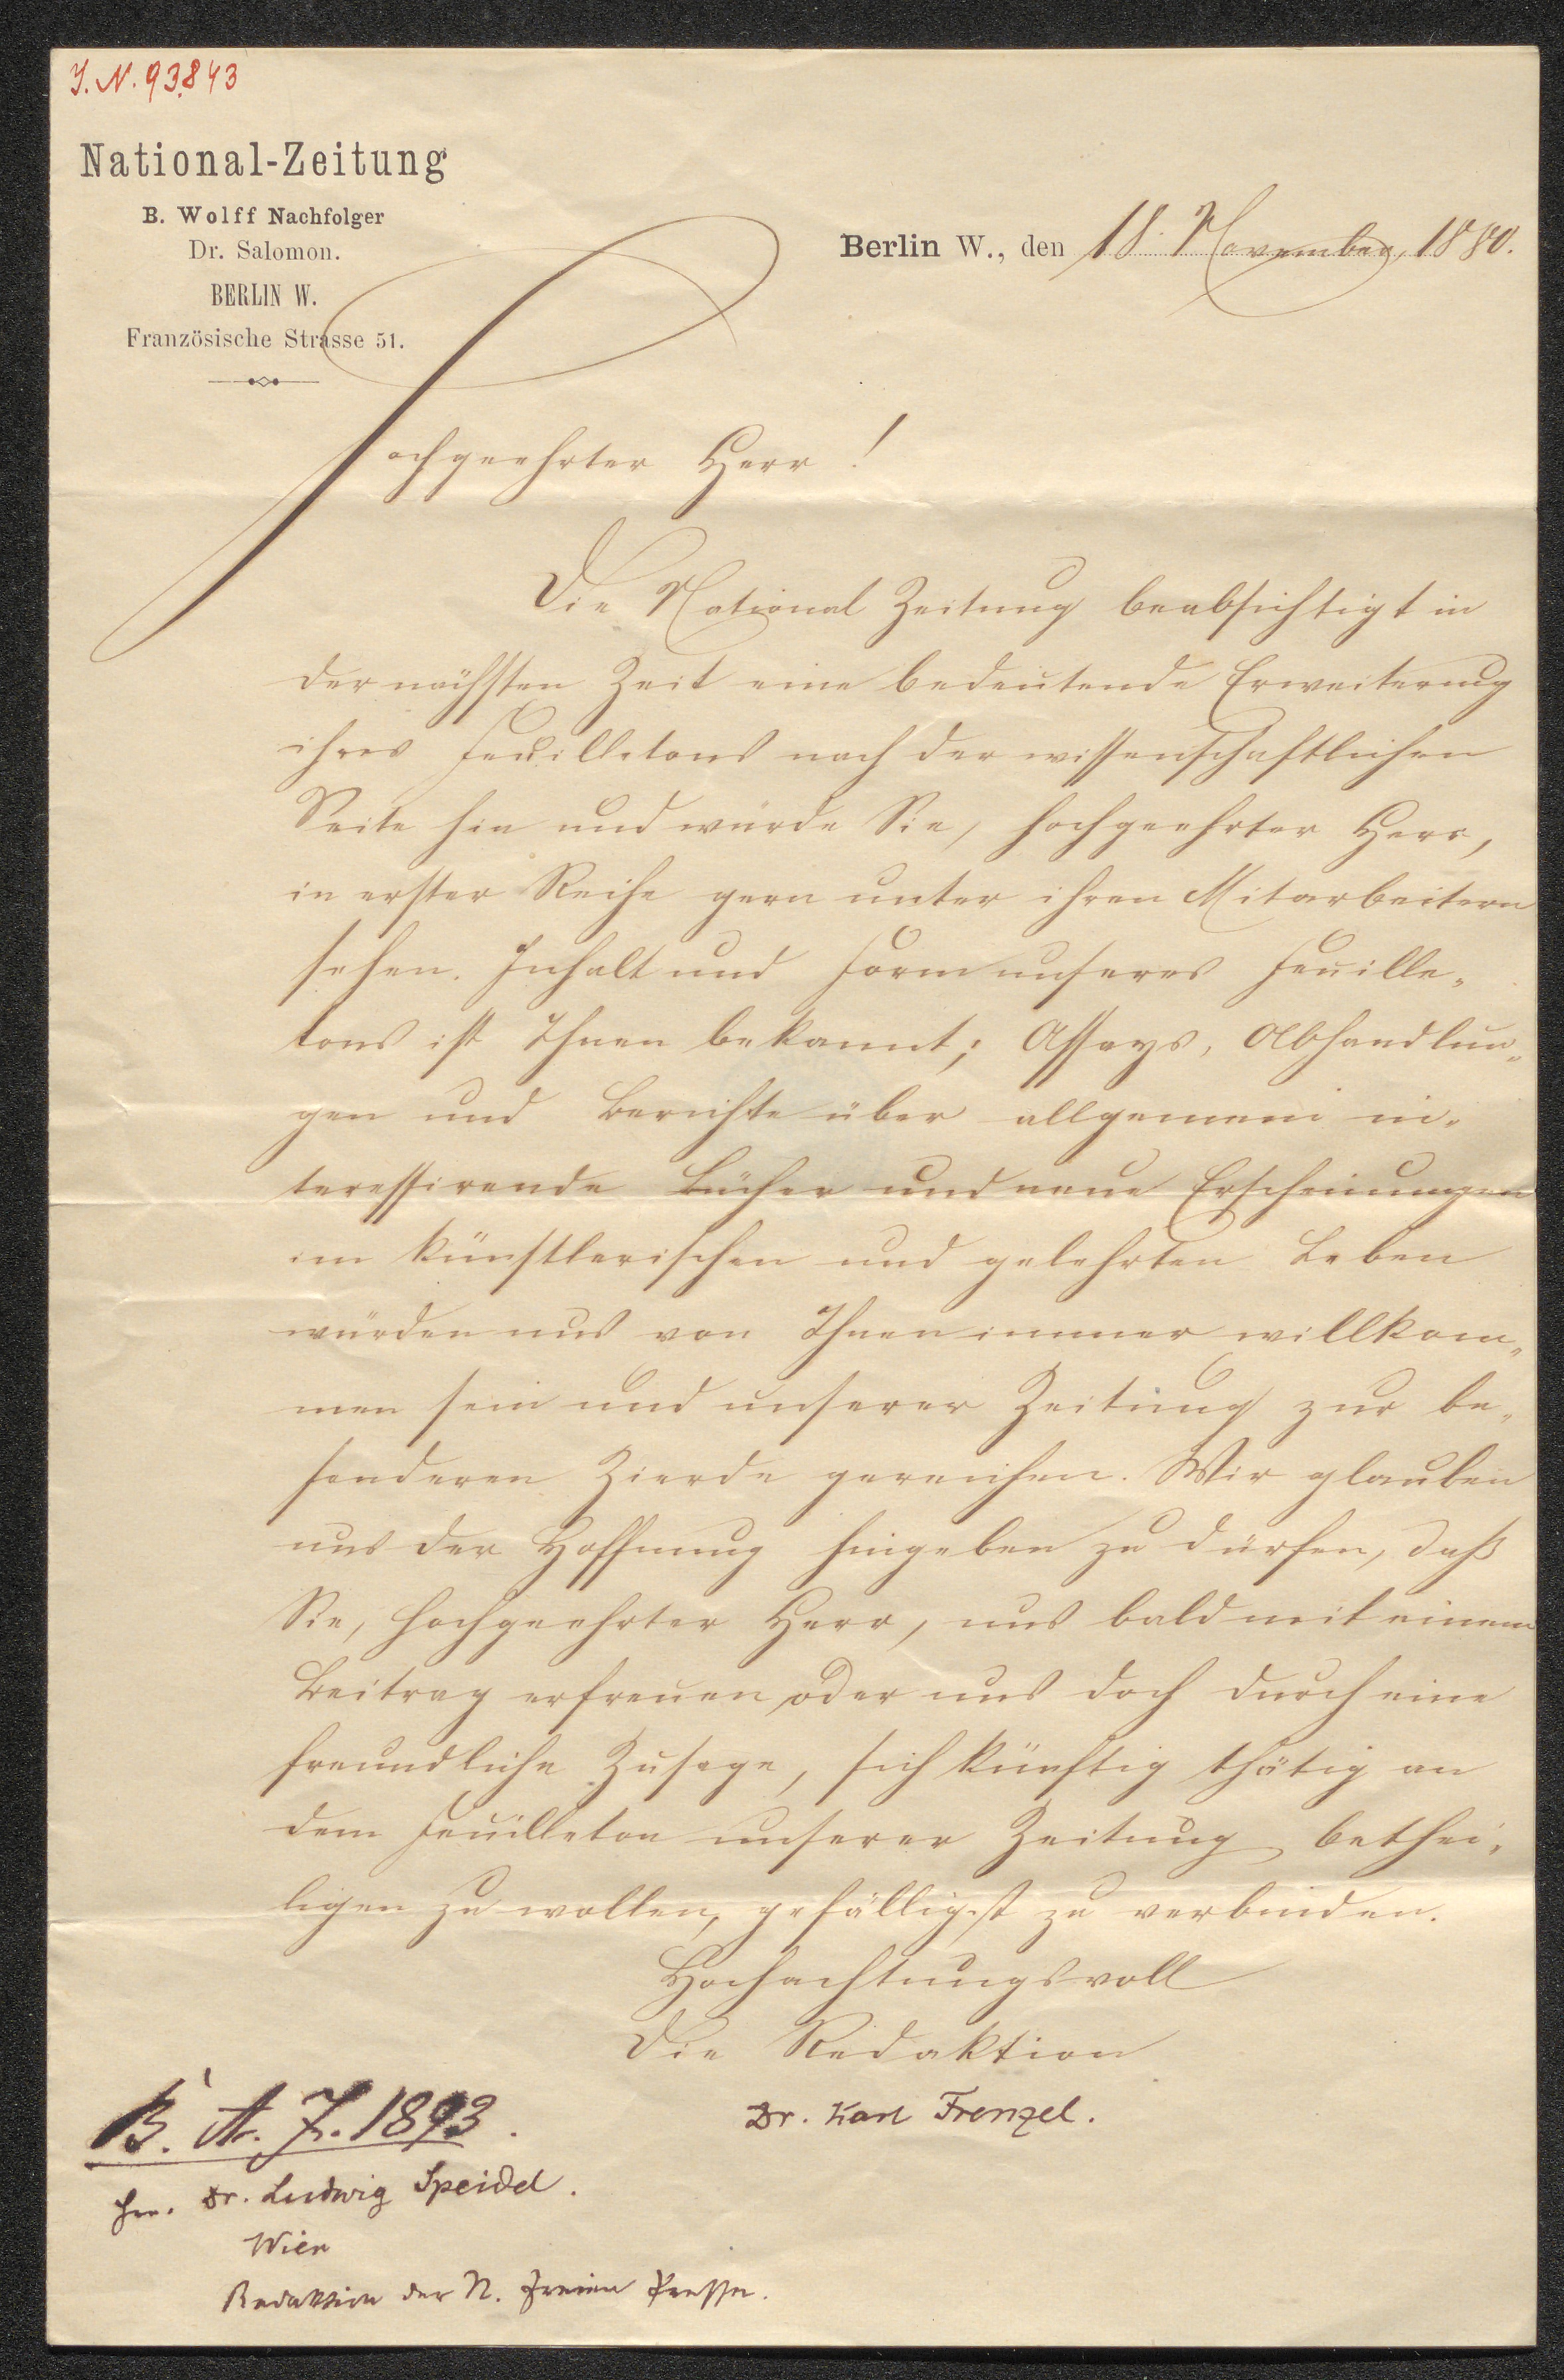 J. N. 93843
National-Zeitung
B. Wolff Nachfolger
Dr. Salomon.
BERLIN W.
Französische Strasse 51.
Berlin W., den 18. November, 1880.
Hochgeehrter Herr!
Die National Zeitung beabsichtigt in
der nächsten Zeit eine bedeutende Erweiterung
ihres Feuilletons nach der wissenschaftlichen
Seite hin und würde Sie, hochgeehrter Herr,
in erster Reihe gern unter ihren Mitarbeitern
sehen. Inhalt und Form unseres Feuille„
tons ist Ihnen bekannt; Essays, Abhandlun„
gen und Berichte über allgemein in„
teressirende Bücher und neue Erscheinungen
im künstlerischen und gelehrten Leben
würden uns von Ihnen immer willkom„
men sein und unserer Zeitung zur be„
sonderen Zierde gereichen. Wir glauben
uns der Hoffnung hingeben zu dürfen, daß
Sie, hochgeehrter Herr, uns bald mit einem
Beitrag erfreuen oder uns doch durch eine
freundliche Zusage, sich künftig thätig an
dem Feuilleton unserer Zeitung bethei„
ligen zu wollen, gefälligst zu verbinden.
Hochachtungsvoll
Die Redaktion
Dr. Karl Frenzel.
B. A. Z. 1893.
Hrn. Dr. Ludwig Speidel.
Wien
Redaktion der N. Freien Presse.